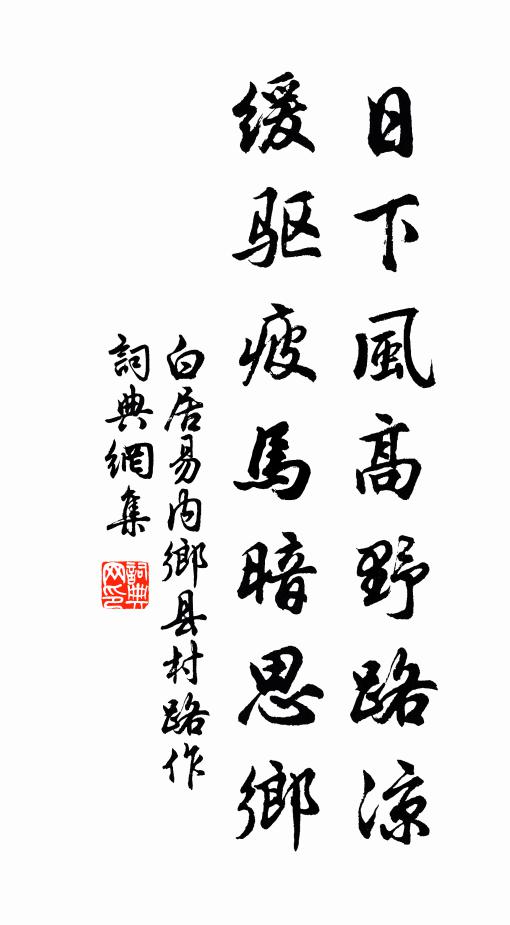 日下風高野路涼
缓驱疲馬暗思鄉
白居易内鄉县村路作
詞典網集
詞典
网印